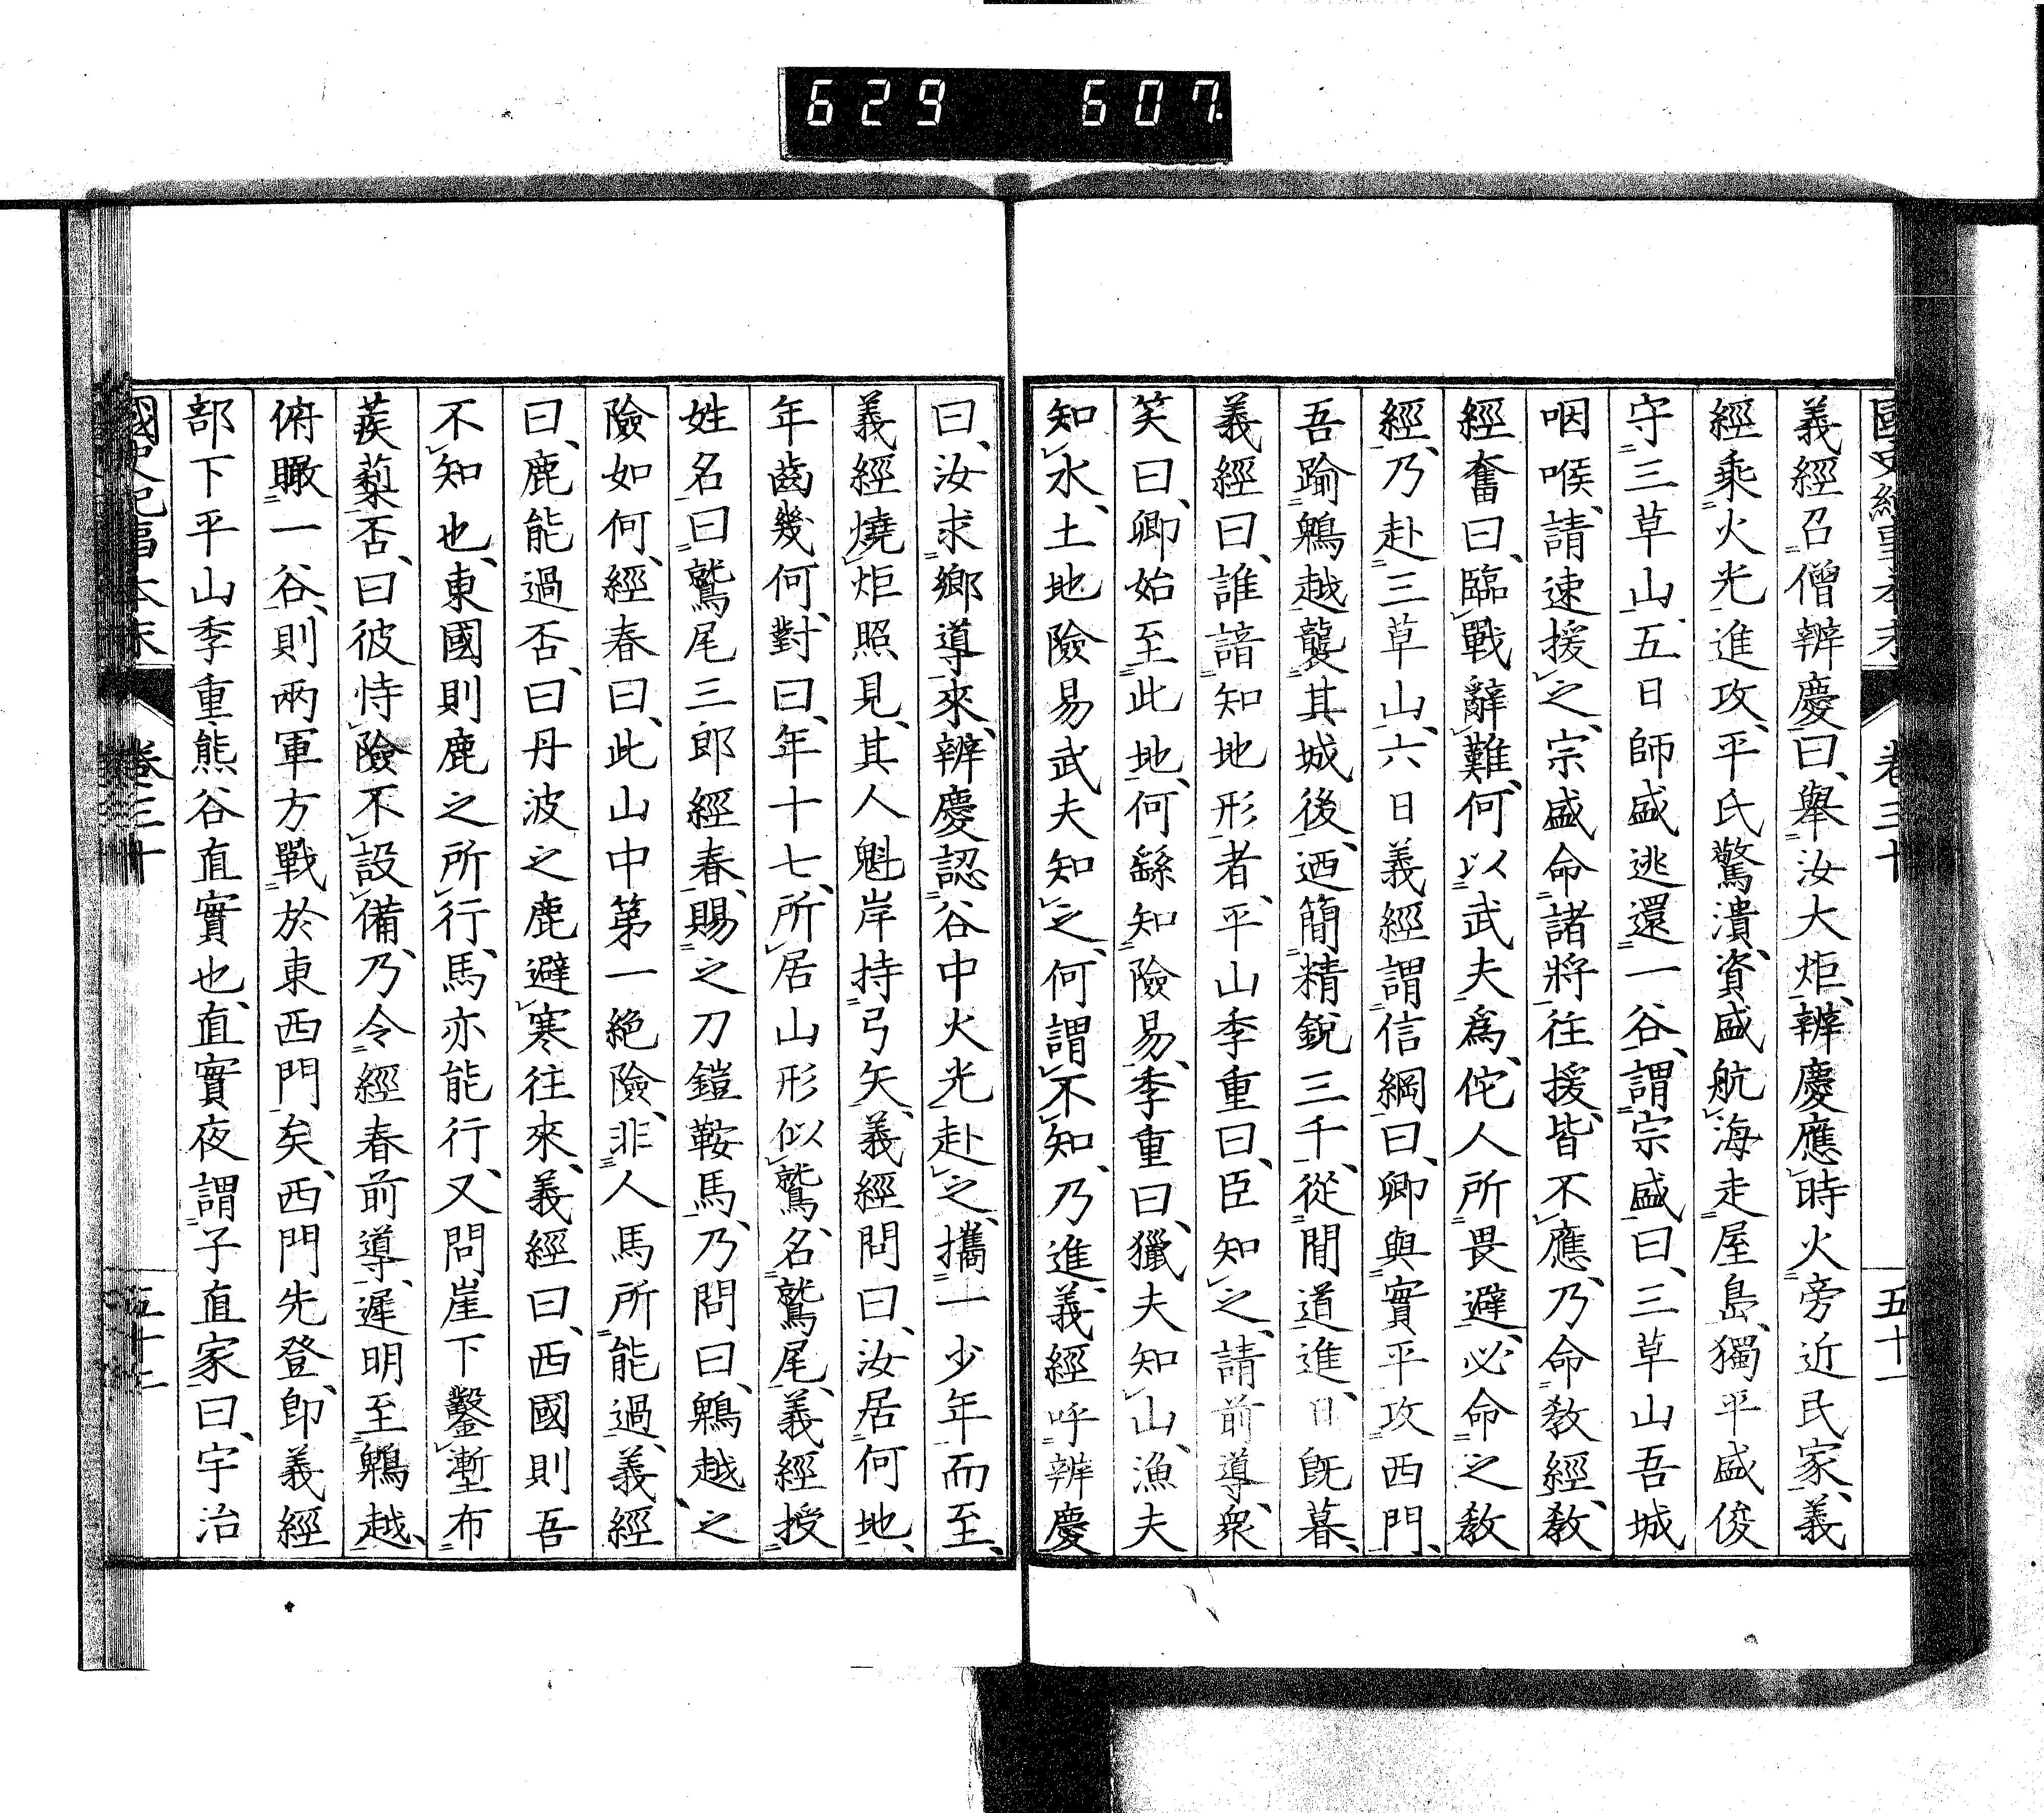 629 607
國史紀事本末 卷三十 五十一
義經召僧辨慶曰、舉汝大炬、辨慶應時火旁近民家、義
經乘火光進攻、平氏驚潰、資盛航海走屋島、獨平盛俊
守三草山、五日師盛逃還一谷、謂宗盛曰、三草山吾城
咽喉、請速援之、宗盛命諸將往援、皆不應、乃命教經、教
經奮曰、臨戰辭難、何以武夫爲、佗人所畏避、必命之教
經、乃赴三草山、六日義經謂信綱曰、卿與實平攻西門、
吾踰鵯越襲其城、後、迺簡精銳三千、從間道進、日既暮、
義經曰、誰諳知地形者、平山季重曰、臣知之、請前導、衆
笑曰、卿始至此地、何繇知險易、季重曰、獵夫知山、漁夫
知水、土地險易武夫知之、何謂不知、乃進、義經呼辨慶
曰、汝求鄉導來、辨慶認谷中火光赴之、攜一少年而至、
義經燒炬照見、其人魁岸持弓矢、義經問曰、汝居何地、
年齒幾何、對曰、年十七、所居山形似鷲、名鷲尾、義經授
姓名曰鷲尾三郎經春、賜之刀鎧鞍馬、乃問曰、鵯越之
險如何、經春曰、此山中第一絕險、非人馬所能過、義經
曰、鹿能過否、曰丹波之鹿避寒往來、義經曰、西國則吾
不知也、東國則鹿之所行、馬亦能行、又問崖下鑿塹布
蒺蔾否、曰彼恃險不設備、乃令經春前導、遲明至鵯越、
俯瞰一谷、則兩軍方戰於東西門矣、西門先登、卽義經
部下平山季重熊谷直實也、直實夜謂子直家曰、宇治
國史紀事本末 卷三十 五十二